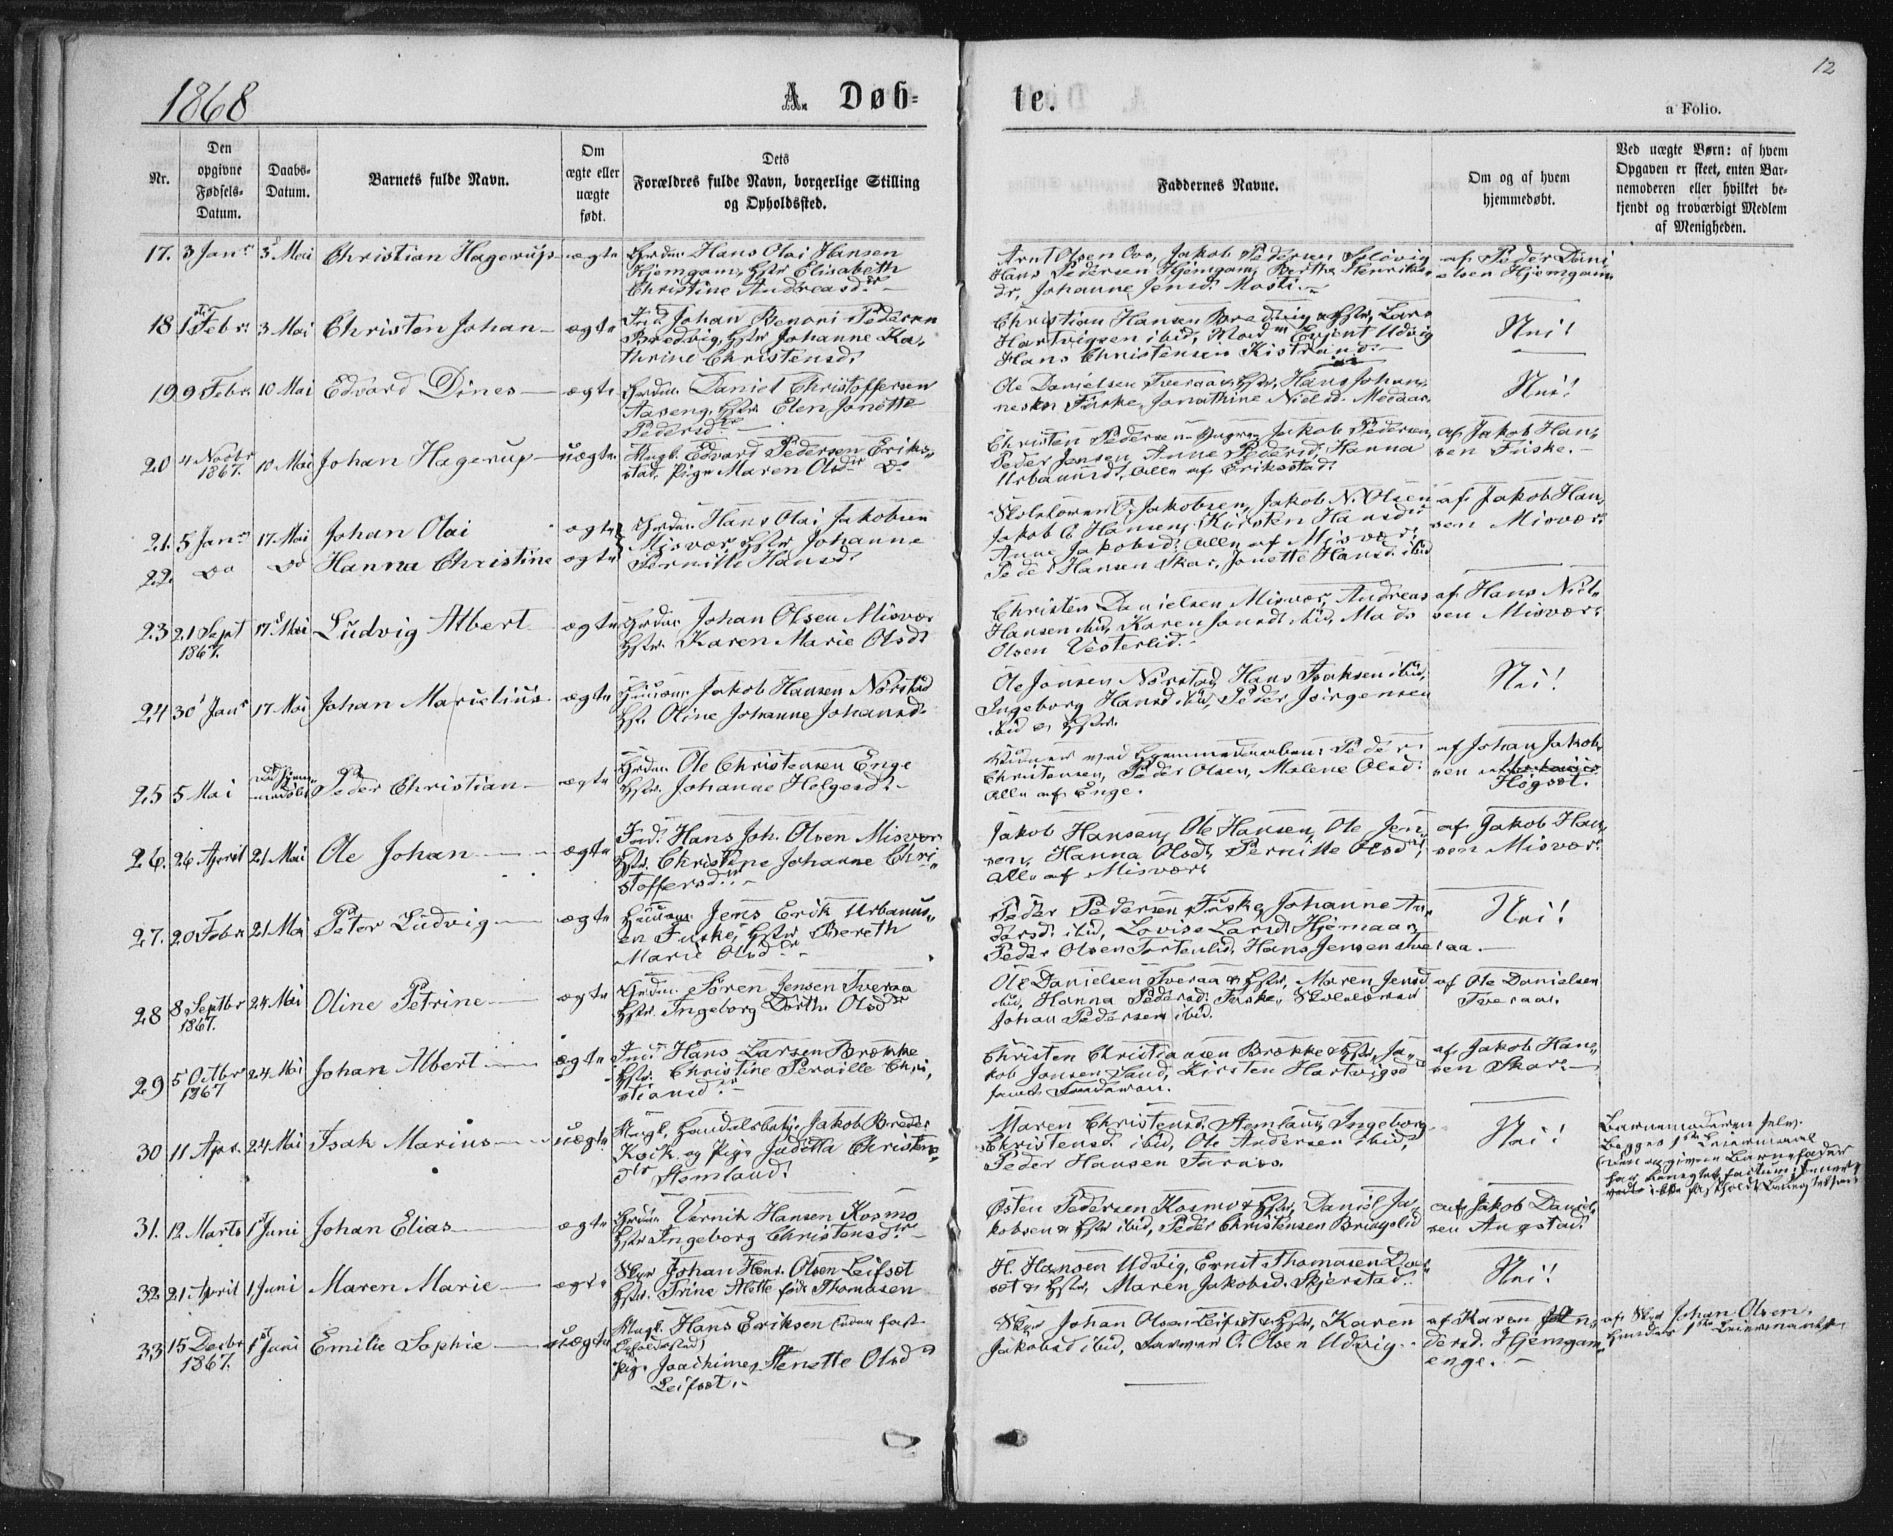 1868
A. Døb=
te.
12
a Folio.
Nr.
Den opgivne Fødsels-Datum.
Daabs-Datum.
Barnets fulde Navn.
Om ægte eller uægte født.
Dets Forældres fulde Navn, borgerlige Stilling og Opholdssted.
Faddernes Navne.
Om og af hvem hjemmedøbt.
Ved uægte Børn: af hvem Opgaven er skeet, enten Barnemoderen eller hvilket bekjendt og troværdigt Medlem af Menigheden.
17. 3 Janr 3 Mai Christian Hagerup ægte Grdm. Hans Olai Hansen
Hjemgam, Hstr Elisabeth
Christine Andreasdr
Arnt Olsen Oos, Jakob Pedersen Solvig
Hans Pedersen Hjemgam, Berthe Henriks-
dr, Johanne Jensd. Mosti
af Peder Dani
elsen Hjemgam
18 1ste Febr. 3 Mai Christen Johan ægte Ind. Johan Benoni Pedersen
Bredvig, Hstr Johanne Ka-
thrine Christensd.
Christian Hansen Bredvig & Hstr, Lars
Hartvigsen ibid, Evjent Udvig
Hans Christensen Kistrand
Nei!
19 9 Febr. 10 Mai Edvard Dines ægte Grdm. Daniel Christoffersen
Aaseng, Hstr. Elen Jonette
Pedersdr
Ole Danielsen Tveraa & Hstr, Hans Johan-
nesen Fuske, Jonathine Nielsd. Medaas
Nei!
20 4 Novbr 1867. 10 Mai Johan Hagerup uægte Ungk. Edvard Pedersen Eriks-
stad, Pige Maren Olsdr Do
Christen Pedersen, Jakob Pedersen,
Peder Jensen, Anne Pedersd, Hanna
Urbanusd. alle af Eriksstad
af Jakob Han-
sen Fuske.
21. 5 Janr 17 Mai Johan Olai ægte Grdm. Hans Olai Jakobsen
22. Do Do Hanna Christine ægte Misvær, Hstr Johanne
Pernille Hansd.
Skolelærer C. Jakobsen, Jakob N. Olsen
Jakob C. Hansen, Kirsten Hansd.
Anne Jakobsd. alle af Misvær,
Peder Hansen Skar, Jonette Hansd. ibid
af Jakob Han-
sen Misvær.
23 21 Sept 1867. 17 Mai Ludvig Albert ægte Grdm. Johan Olsen Misvær
Hstr. Karen Marie Olsd
Christen Danielsen Misvær, Andreas
Hansen ibid, Karen Jonsd. ibid, Mads
Olsen Vesterlid.
af Hans Niel-
sen Misvær.
24 30 Janr 17 Mai Johan Marselius ægte Huusm. Jakob Hansen Nørstad
Hstr. Oline Johanne Johansd.
Ole Jonsen Nørstad, Hans Isaksen ibid,
Ingeborg Hansd. ibid, Peder Jørgensen
ibid & Hstr.
Nei!
25 5 Mai Peder Christian ægte Grdm. Ole Christensen Enge
Hstr. Johanne Helgesd.
Vidner ved Hjemmedaaben: Peder
Christensen, Peder Olsen, Malene Olsd.
alle af Enge.
af Johan Jakob-
sen Høgset.
26. 26 April 21 Mai Ole Johan ægte Ind. Hans Joh. Olsen Misvær
Hstr. Christine Johanne Chri-
stoffersdr.
Jakob Hansen, Ole Hansen, Ole Jen-
sen, Hanna Olsd, Pernille Olsd,
alle af Misvær
af Jakob Han-
sen Misvær.
27. 20 Febr 21 Mai Peter Ludvig ægte Huusm. Jens Erik Urbanus-
en Fuske, Hstr Bereth
Marie Olsd.
Peder Pedersen Fuske, Johanne An-
dersd. ibid, Lovise Larsd. Hjemaas
Peder Olsen Tortenlid, Hans Jensen Tveraa.
Nei!
28 8 Septbr 1867. 24 Mai Oline Petrine ægte Grdm. Søren Jensen Tveraa
Hstr. Ingeborg Dorth. Olsdr
Ole Danielsen Tveraa & Hstr, Maren Jensd
ibid, Hanna Pedersd. Fuske, Skolelærer
Johan Pedersen ibid.
af Ole Danielsen
Tveraa.
29 5 Octbr 1867 24 Mai Johan Albert ægte Ind. Hans Larsen Brække
Hstr. Christine Pernille Chri-
stiansdr.
Christen Christiansen Brække & Hstr, Ja-
kob Jonsen Sand, Kirsten Hartvigsd
af Jakob Han-
sen Skar.
30 11 Apr. 24 Mai Isak Marius uægte Ungk. Handelsbetj. Jakob Breder
Koik og Pige Juditta Christens-
dr Stemland.
Maren Christensd. Stemland, Ingeborg
Christensd. ibid, Ole Andersen ibid,
Peder Hansen Furnes.
Nei!
Barnemoderen selv.
Begges 1ste Leiermaal
Den opgivne Barnefader
har benegtet factum
31. 12 Marts 1 Juni Johan Elias ægte Grdm. Vernik Hansen Kosmo
Hstr Ingeborg Christensdr
Østen Pedersen Kosmo & Hstr, Daniel Ja-
kobsen & Hstr ibid, Peder Christensen Bringslid
af Jakob Daniel-
sen Angstad.
32 21 April 1 Juni Maren Marie ægte Skpr Johan Henr. Olsen Leifset
Hstr. Trine Alette født Thomasen
H. Hansen Udvig, Ernst Thomasen
set & Hstr, Maren Jakobsd. Skjerstad.
Nei!
33 15 Decbr 1867. 1 Juni Emilie Sophie uægte Ungk. Hans Eriksen (uden fast
Opholdssted)
Pige Joachime Stenette Olsd
Leifset.
Skpr Johan Olsen Leifset & Hstr, Karen
Jakobsd ibid, Farver C. Olsen Udvig.
af Karen An-
dersd. Hjemgam-
enge.
af Skpr Johan Olsen.
Hendes 1ste Leiermaal